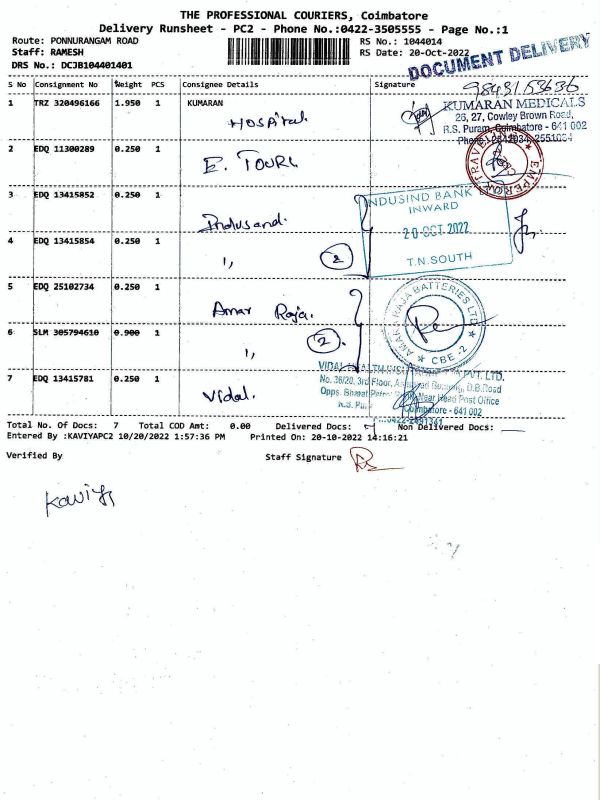 THE PROFESSIONAL COURIERS, Coimbatore
Delivery Runsheet - PC2 - Phone No.:0422-3505555 - Page No.:1
Route: PONNURANGAM ROAD RS No.: 1044014
Staff: RAMESH RS Date: 20-Oct-2022
DRS No.: DCJB104401401
DOCUMENT DELIVERY
S No Consignment No Weight PCS Consignee Details Signature
9843153636
1 TRZ 320496166 1.950 1 KUMARAN
Hospital
KUMARAN MEDICALS
26, 27, Cowley Brown Road,
R.S. Puram, Coimbatore - 641 002
2 EDQ 11300289 0.250 1
E. TOURS
EMPEROR TRAVEL
3 EDQ 13415852 0.250 1
Indusand.
INDUSIND BANK
INWARD
20 OCT 2022
T.N.SOUTH
4 EDQ 13415854 0.250 1
1, 2
5 EDQ 25102734 0.250 1
Amar Raja.
AMARA RAJA BATTERIES LTD
★ CBE-2 ★
6 SLM 305794610 0.900 1
1, 2.
7 EDQ 13415781 0.250 1
Vidal.
VIDAL HEALTH PVT. LTD.
No. 36/20, 3rd Floor, D.B.Road
Opps. Bharat Near Head Post Office
Coimbatore - 641 002
Total No. Of Docs: 7 Total COD Amt: 0.00 Delivered Docs: Non Delivered Docs:
Entered By :KAVIYAPC2 10/20/2022 1:57:36 PM Printed On: 20-10-2022 14:16:21
Verified By Staff Signature
Kaviya